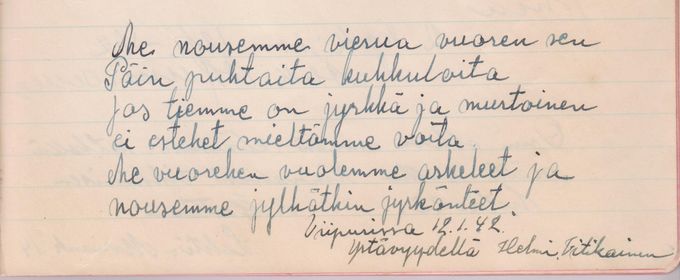 Me nousemme vierua vuoren sen
Päin puhtaita kukkuloita
jos tiemme on jyrkkä ja murtoinen
ei estehet mieltämme voita.
Me vuorehen vuolemme askeleet ja
nousemme jylhätkin jyrkänteet.
Viipurissa 12.1.42.
Ystävyydellä Helmi